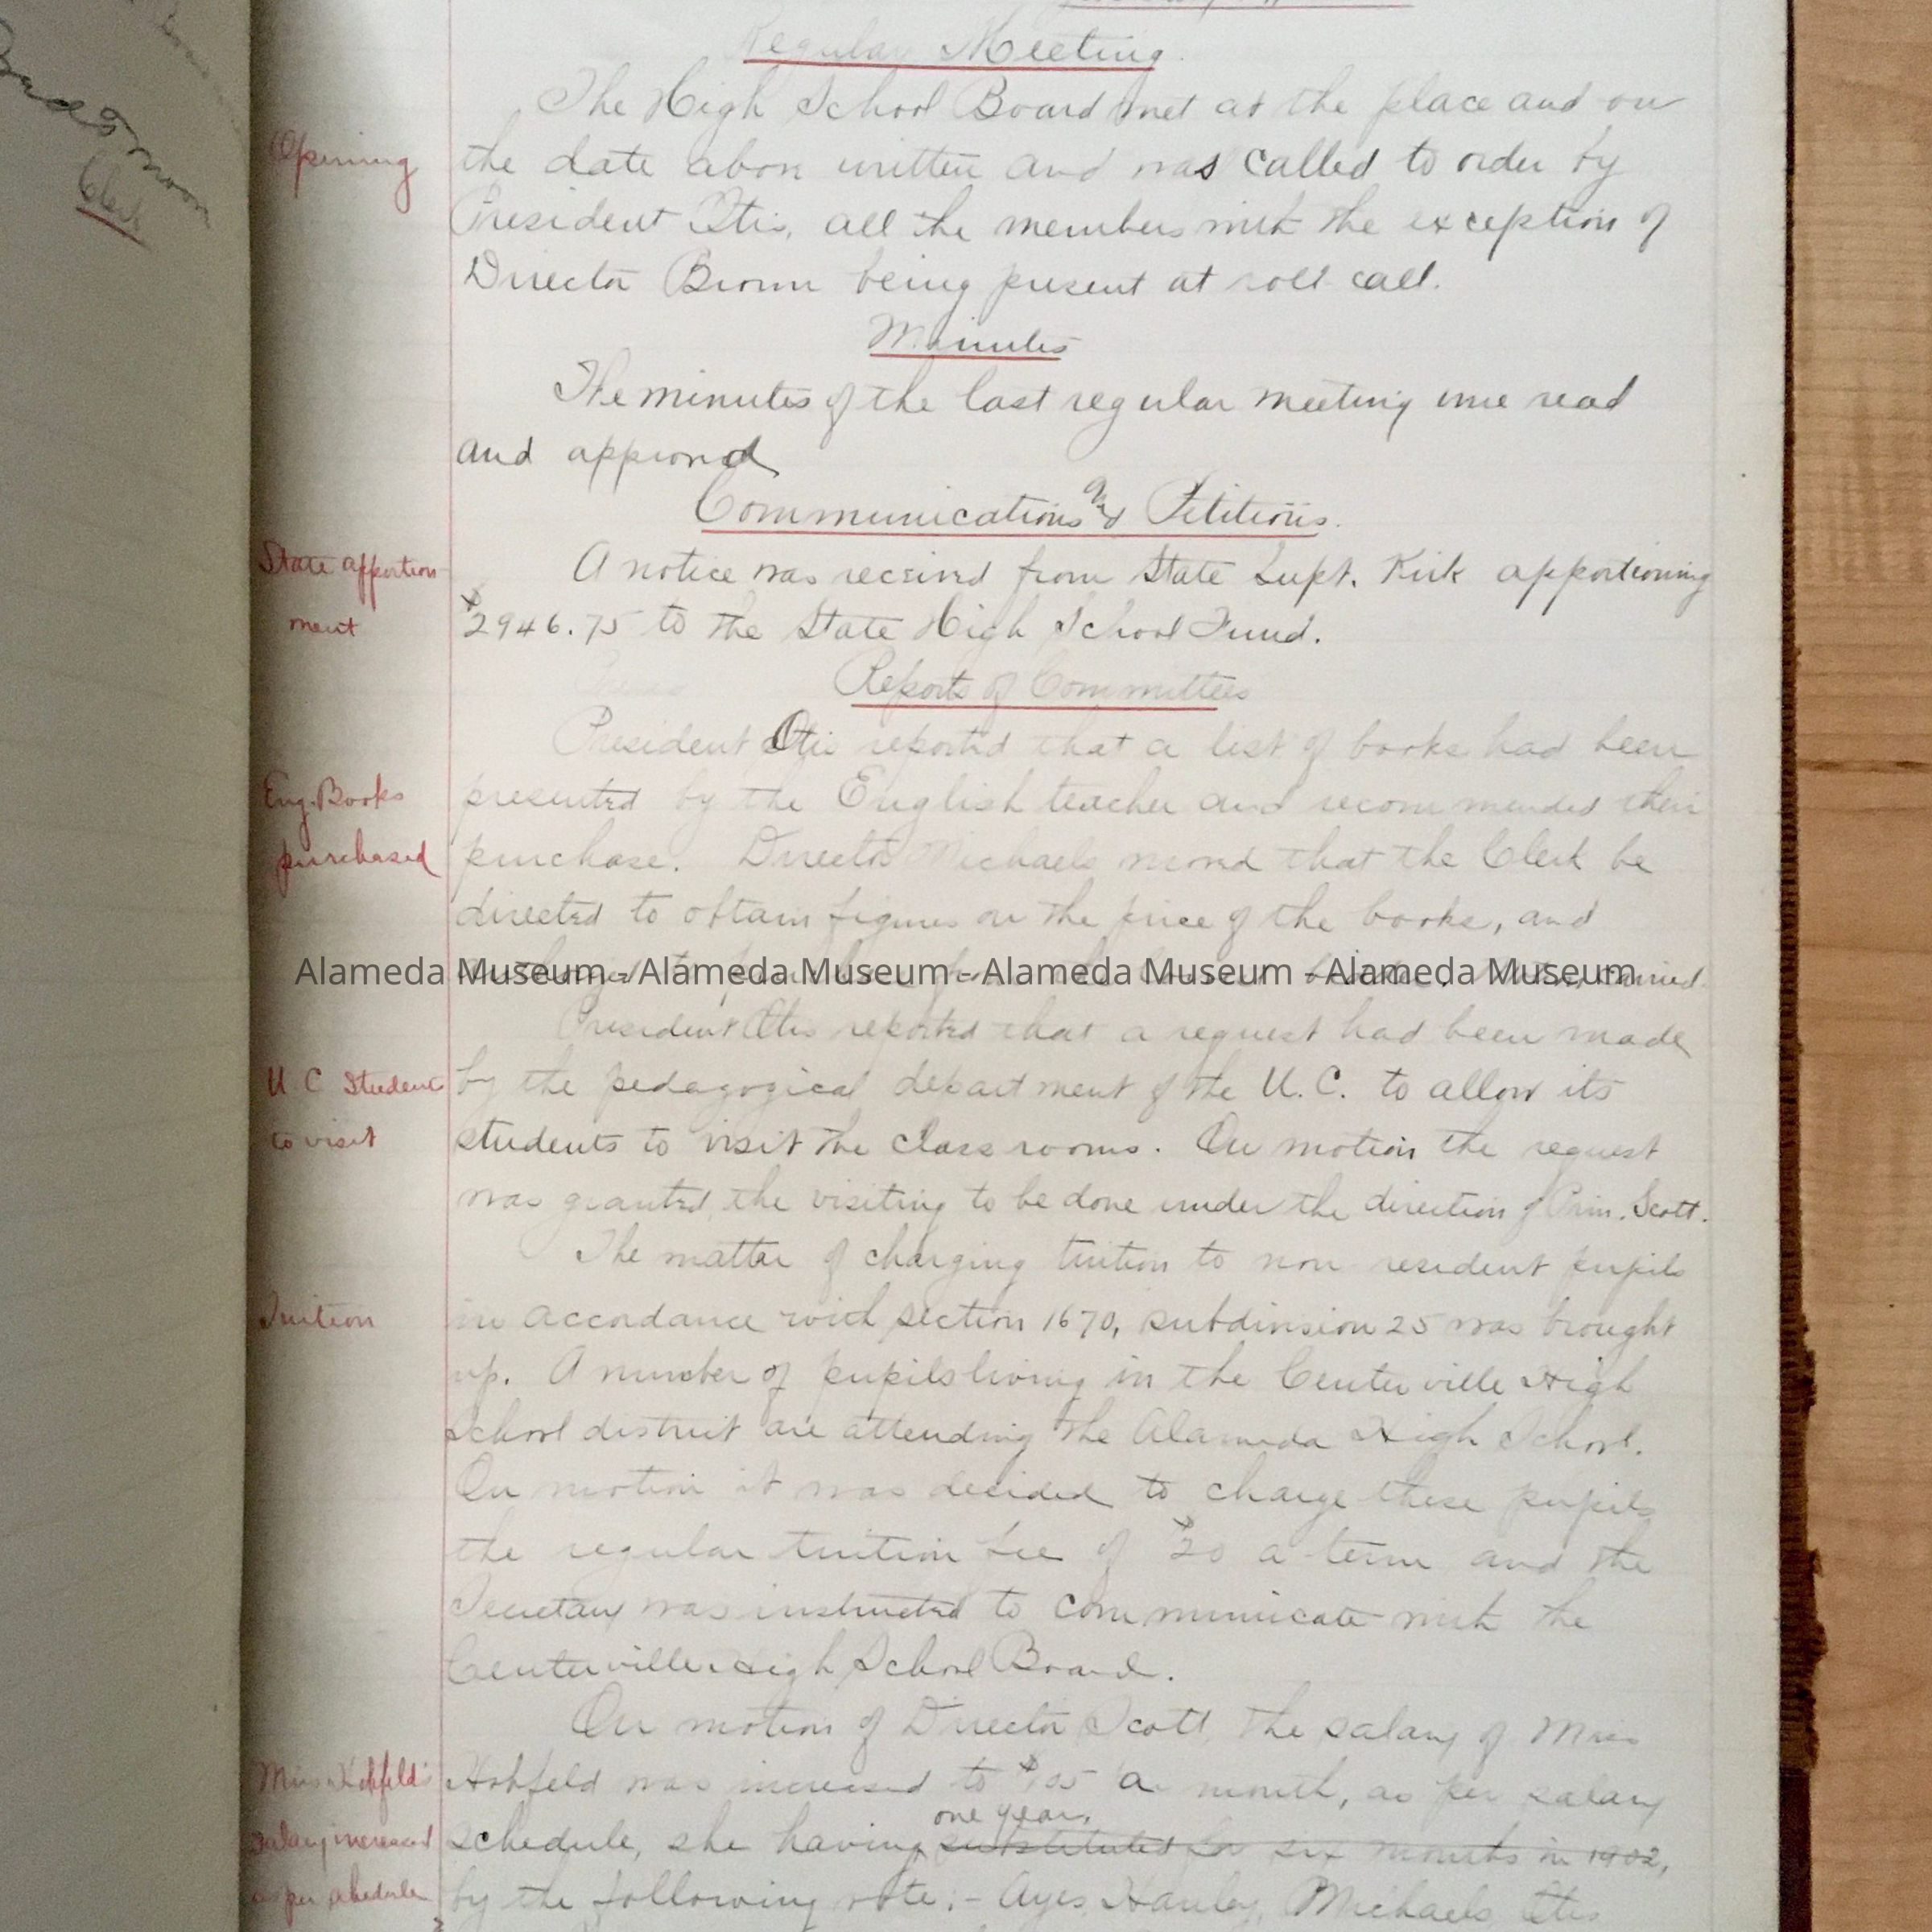 Regular Meeting.
The High School Board met at the place and on
Opening
the date above written and was called to order by
President Otis, all the members with the exception of
Director Brown being present at roll call.
Minutes
The minutes of the last regular meeting were read
and approved
Communications and Petitions.
State apportion-
ment
A notice was received from State Supt. Kirk apportioning
$2946.75 to the State High School Fund.
Reports of Committees
President Otis reported that a list of books had been
Eng. Books
purchased
presented by the English teacher and recommended their
purchase. Director Michaels moved that the Clerk be
directed to obtain figures on the price of the books, and
Alameda Museum - Alameda Museum - Alameda Museum - Alameda Museum
carried
President Otis reported that a request had been made
U. C Students
to visit
by the pedagogical department of the U.C. to allow its
students to visit the class rooms. On motion the request
was granted, the visiting to be done under the direction of Prin. Scott.
The matter of charging tuition to non resident pupils
Tuition
in accordance with section 1670, subdivision 25 was brought
up. A number of pupils living in the Centerville High
School district are attending the Alameda High School.
On motion it was decided to charge these pupils
the regular tuition fee of $20 a term and the
Secretary was instructed to communicate with the
Centerville High School Board.
On motion of Director Scott, the salary of Miss
Miss Hohfeld's
salary increased
as per schedule
Hohfeld was increased to $105 a month, as per salary
one year,
schedule, she having substituted for six months in 1902,
by the following vote:- Ayes, Hanley, Michaels, Otis
Clerk